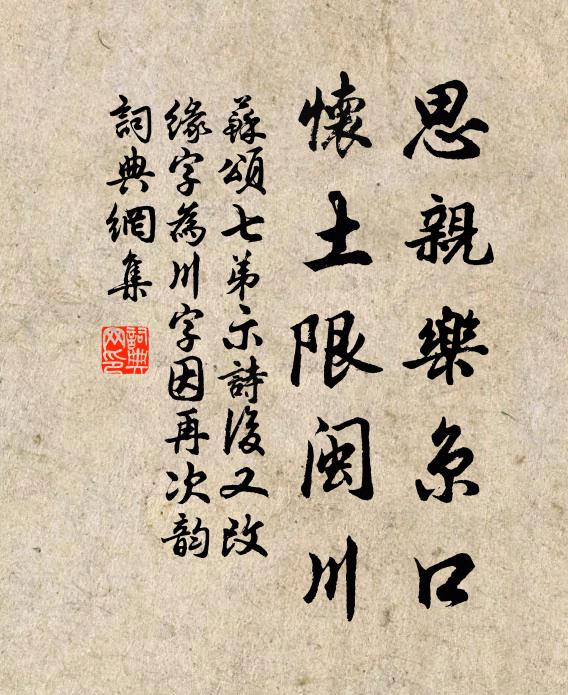 思親樂京口
懷土限閩川
蘇頌七弟示詩後又改
緣字為川字因再次韵
詞典網集
詞典網印